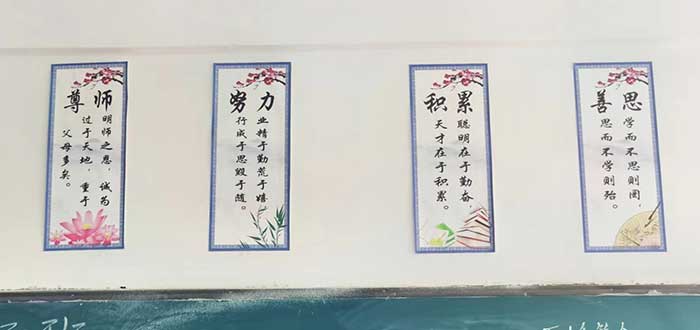 尊师
明师之恩，诚为
过于天地，重于
父母多矣。
努力
业精于勤荒于嬉，
行成于思毁于随。
积累
聪明在于勤奋，
天才在于积累。
善思
学而不思则罔，
思而不学则殆。
班